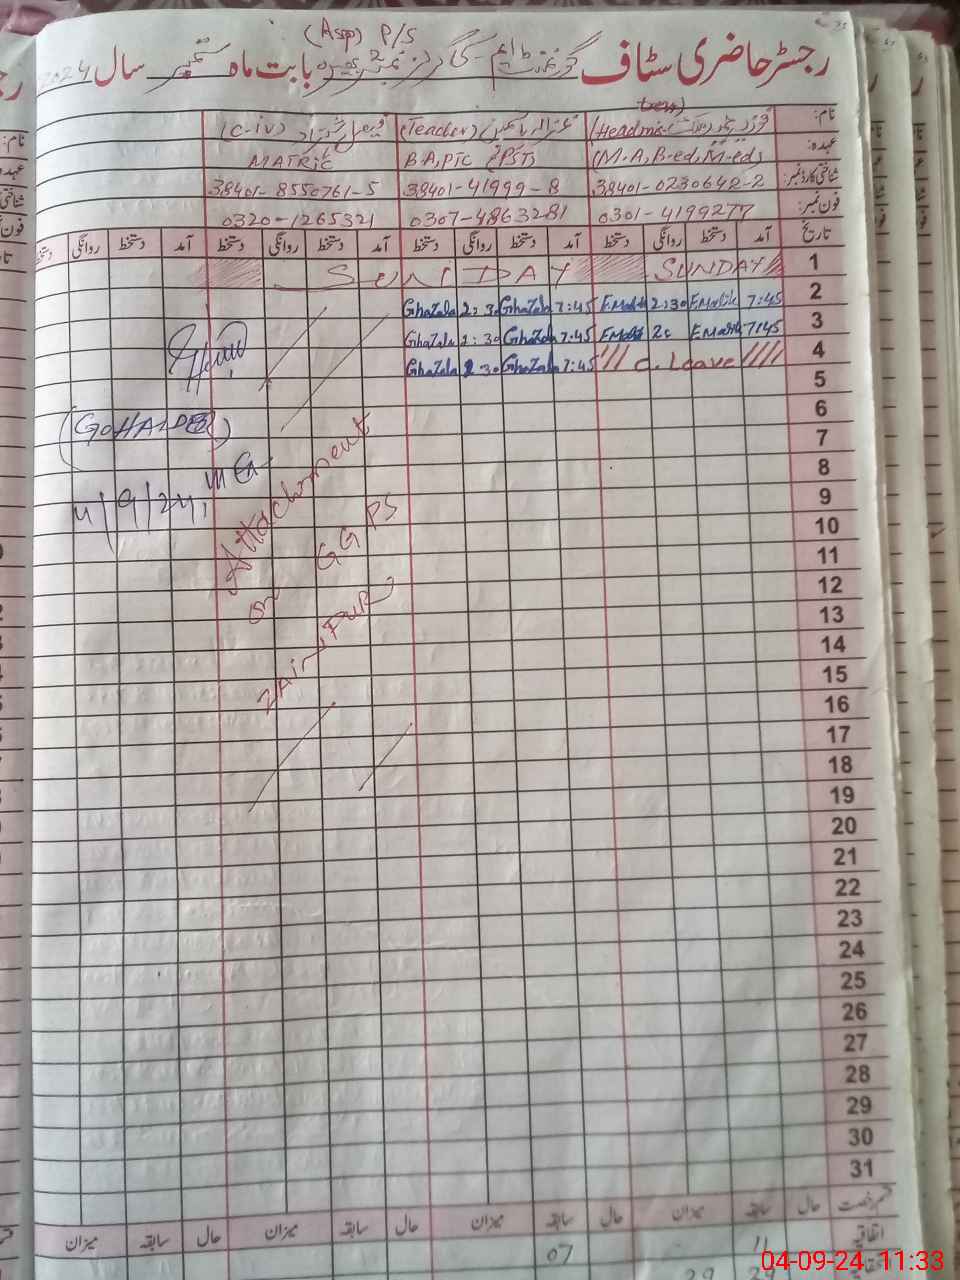 (Asp) P/S
رجسٹر حاضری سٹاف گورنمنٹ بابت ماہ ستمبر سال 2024
نام: (Headmis tress) (Teacher) (C-iv)
عہدہ: (M.A, B-ed, M-ed) B.A, PTC PST MATRIC
شناختی کارڈ نمبر: 38401-0230642-2 38401-41999-8 38401-8550761-5
فون نمبر: 0301-4199277 0307-4863281 0320-1265321
تاریخ آمد دستخط روانگی دستخط آمد دستخط روانگی دستخط آمد دستخط روانگی دستخط آمد دستخط روانگی
1 SUNDAY SUNDAY
2 7:45 E.Malik 2:30 E.Malik 7:45 Ghazala 2:30 Ghazala
3 7:45 E.Malik E.Malik 7:45 Ghazala 2:30 Ghazala
4 C. Leave 7:45 Ghazala 2:30 Ghazala
5
6
7
8
9
10
11
12
13
14
15
16
17
18
19
20
21
22
23
24
25
26
27
28
29
30
31
Attachment
on GGPS
4/9/24
حال سابقہ میزان حال سابقہ میزان حال سابقہ میزان حال سابقہ میزان
اتفاقیہ 11 07
29
04-09-24 11:33